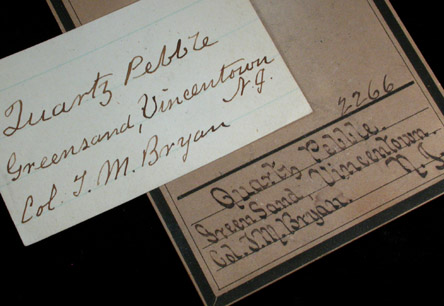 Quartz Pebble
Greensand, Vincentown
N.J.
Col. T. M. Bryan
2266
Quartz Pebble.
GreenSand, Vincentown.
N.J.
Col. T.M. Bryan.